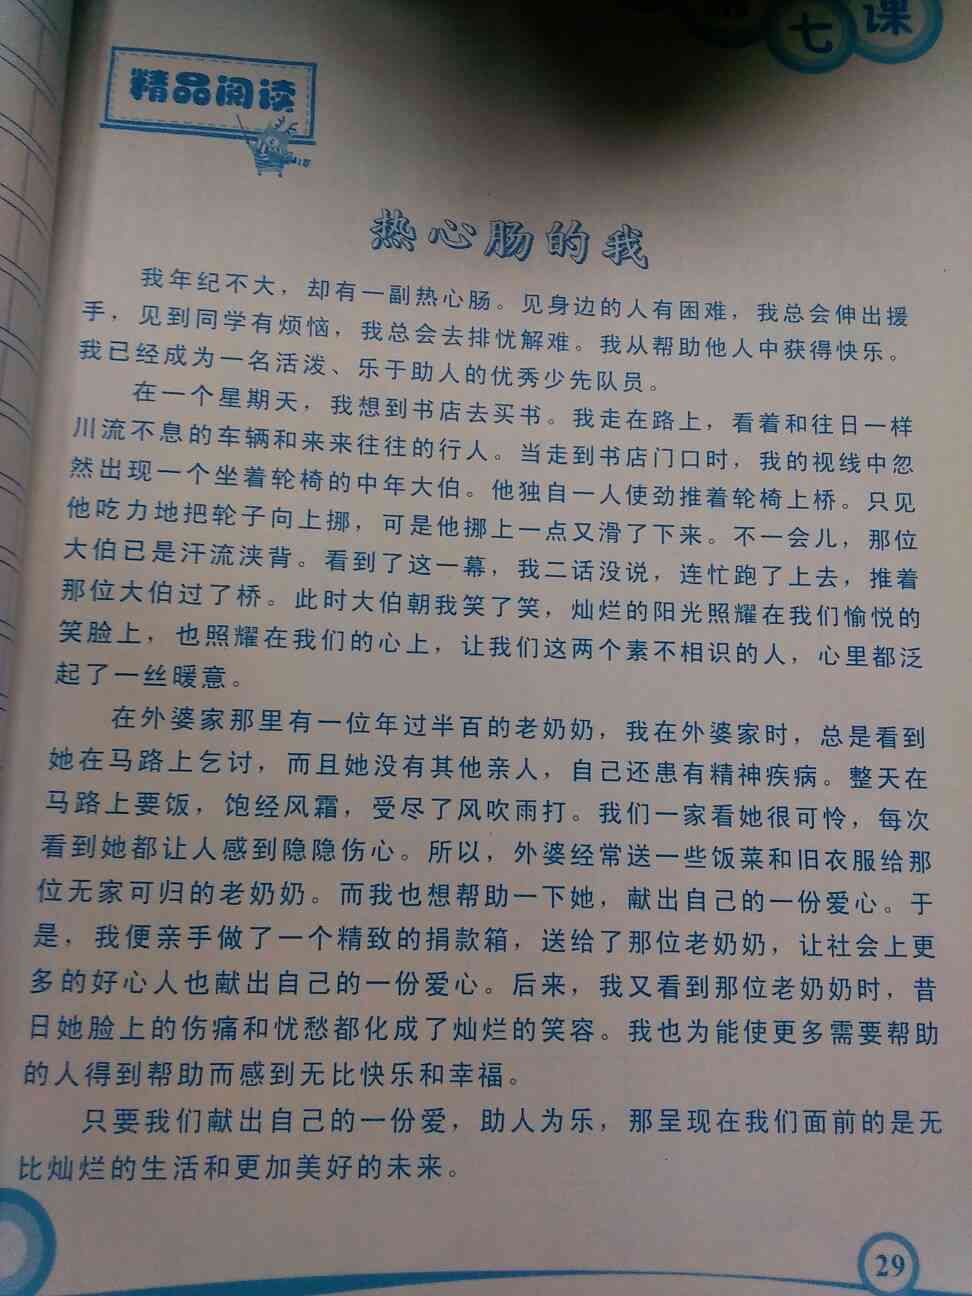 七课
精品阅读
热心肠的我
我年纪不大，却有一副热心肠。见身边的人有困难，我总会伸出援
手，见到同学有烦恼，我总会去排忧解难。我从帮助他人中获得快乐。
我已经成为一名活泼、乐于助人的优秀少先队员。
在一个星期天，我想到书店去买书。我走在路上，看着和往日一样
川流不息的车辆和来来往往的行人。当走到书店门口时，我的视线中忽
然出现一个坐着轮椅的中年大伯。他独自一人使劲推着轮椅上桥。只见
他吃力地把轮子向上挪，可是他挪上一点又滑了下来。不一会儿，那位
大伯已是汗流浃背。看到了这一幕，我二话没说，连忙跑了上去，推着
那位大伯过了桥。此时大伯朝我笑了笑，灿烂的阳光照耀在我们愉悦的
笑脸上，也照耀在我们的心上，让我们这两个素不相识的人，心里都泛
起了一丝暖意。
在外婆家那里有一位年过半百的老奶奶，我在外婆家时，总是看到
她在马路上乞讨，而且她没有其他亲人，自己还患有精神疾病。整天在
马路上要饭，饱经风霜，受尽了风吹雨打。我们一家看她很可怜，每次
看到她都让人感到隐隐伤心。所以，外婆经常送一些饭菜和旧衣服给那
位无家可归的老奶奶。而我也想帮助一下她，献出自己的一份爱心。于
是，我便亲手做了一个精致的捐款箱，送给了那位老奶奶，让社会上更
多的好心人也献出自己的一份爱心。后来，我又看到那位老奶奶时，昔
日她脸上的伤痛和忧愁都化成了灿烂的笑容。我也为能使更多需要帮助
的人得到帮助而感到无比快乐和幸福。
只要我们献出自己的一份爱，助人为乐，那呈现在我们面前的是无
比灿烂的生活和更加美好的未来。
29